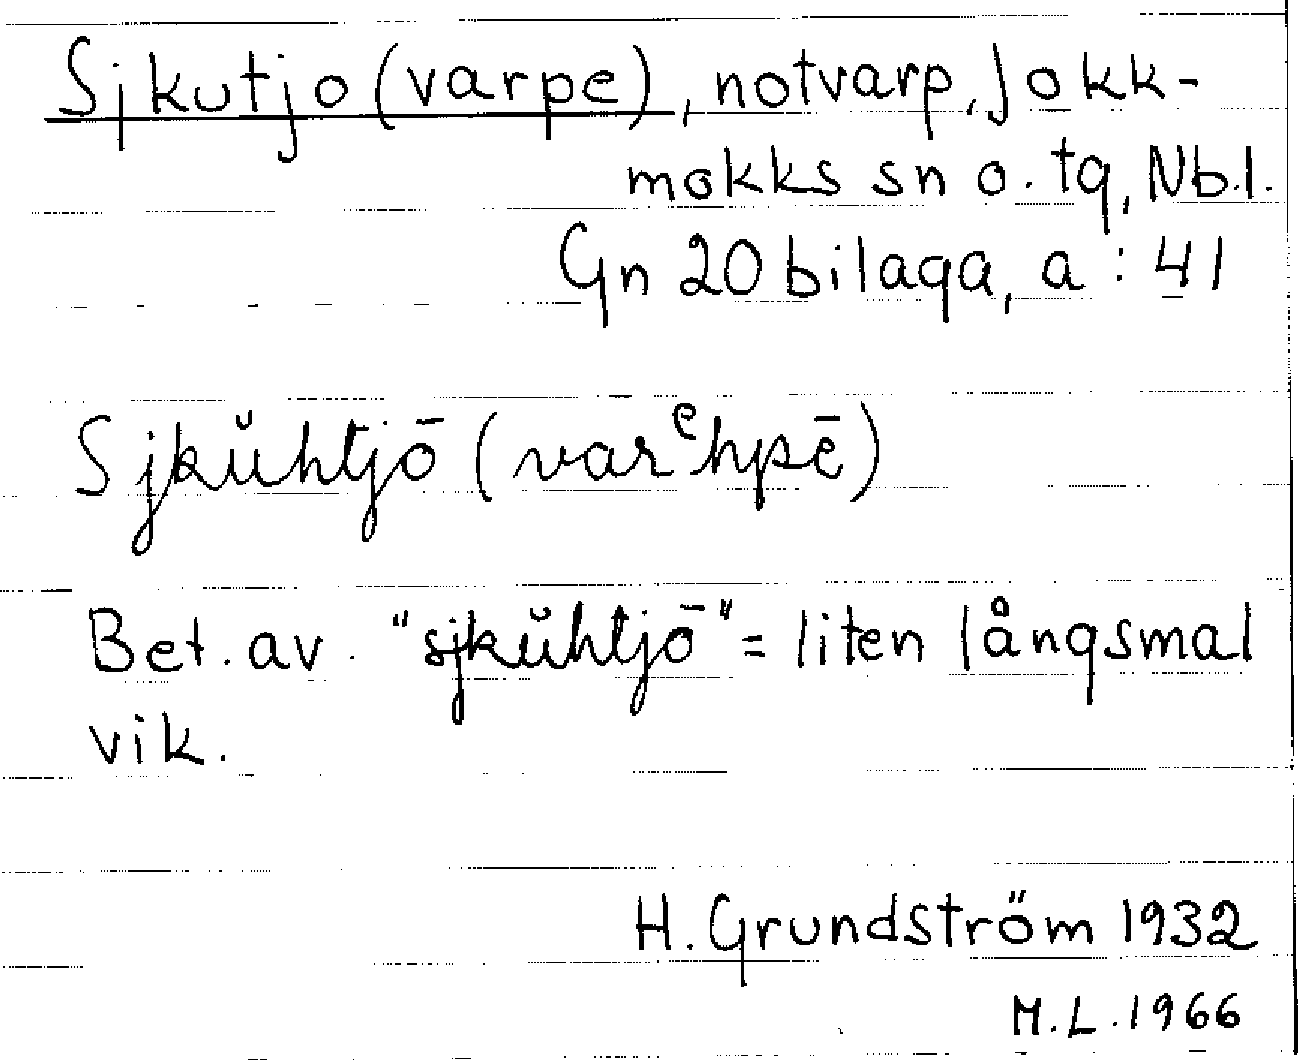 Sjkutjo (varpe), notvarp, Jokk-
mokks sn o. tg, Nb.l.
Gn 20 bilaga, a : 41
Sjkŭhtjō (varᵉhpē)
Bet. av. "sjkŭhtjō" = liten långsmal
vik.
H. Grundström 1932
M.L. 1966